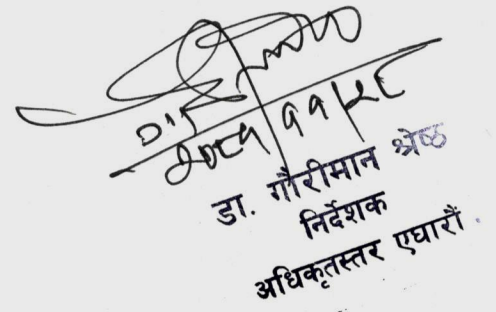 २०८१।११।२८
डा. गौरीमान श्रेष्ठ
निर्देशक
अधिकृतस्तर एघारौं